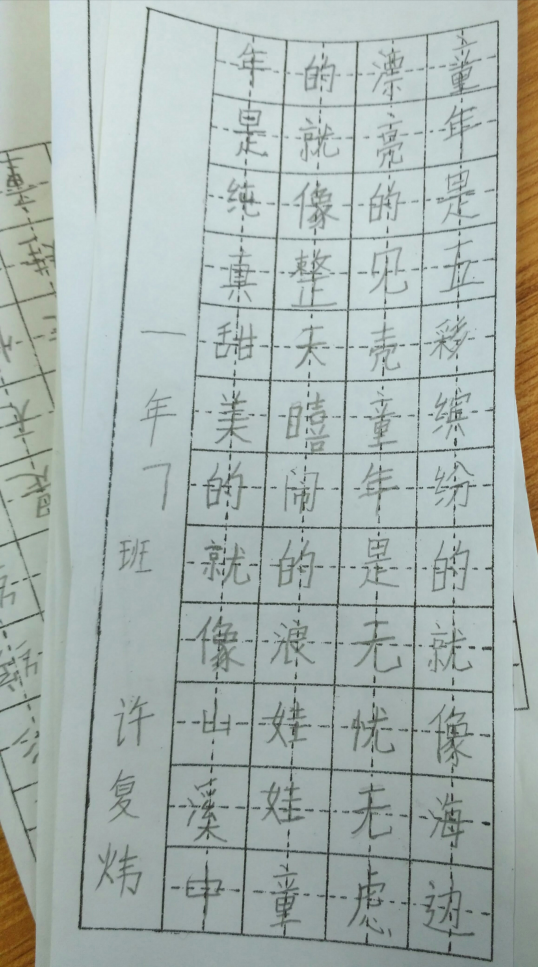 童年是五彩缤纷的就像海边
漂亮的见壳童年是无忧无虑
的就像整天嘻闹的浪娃娃童
年是纯真甜美的就像山溪中
一年7班 许复炜